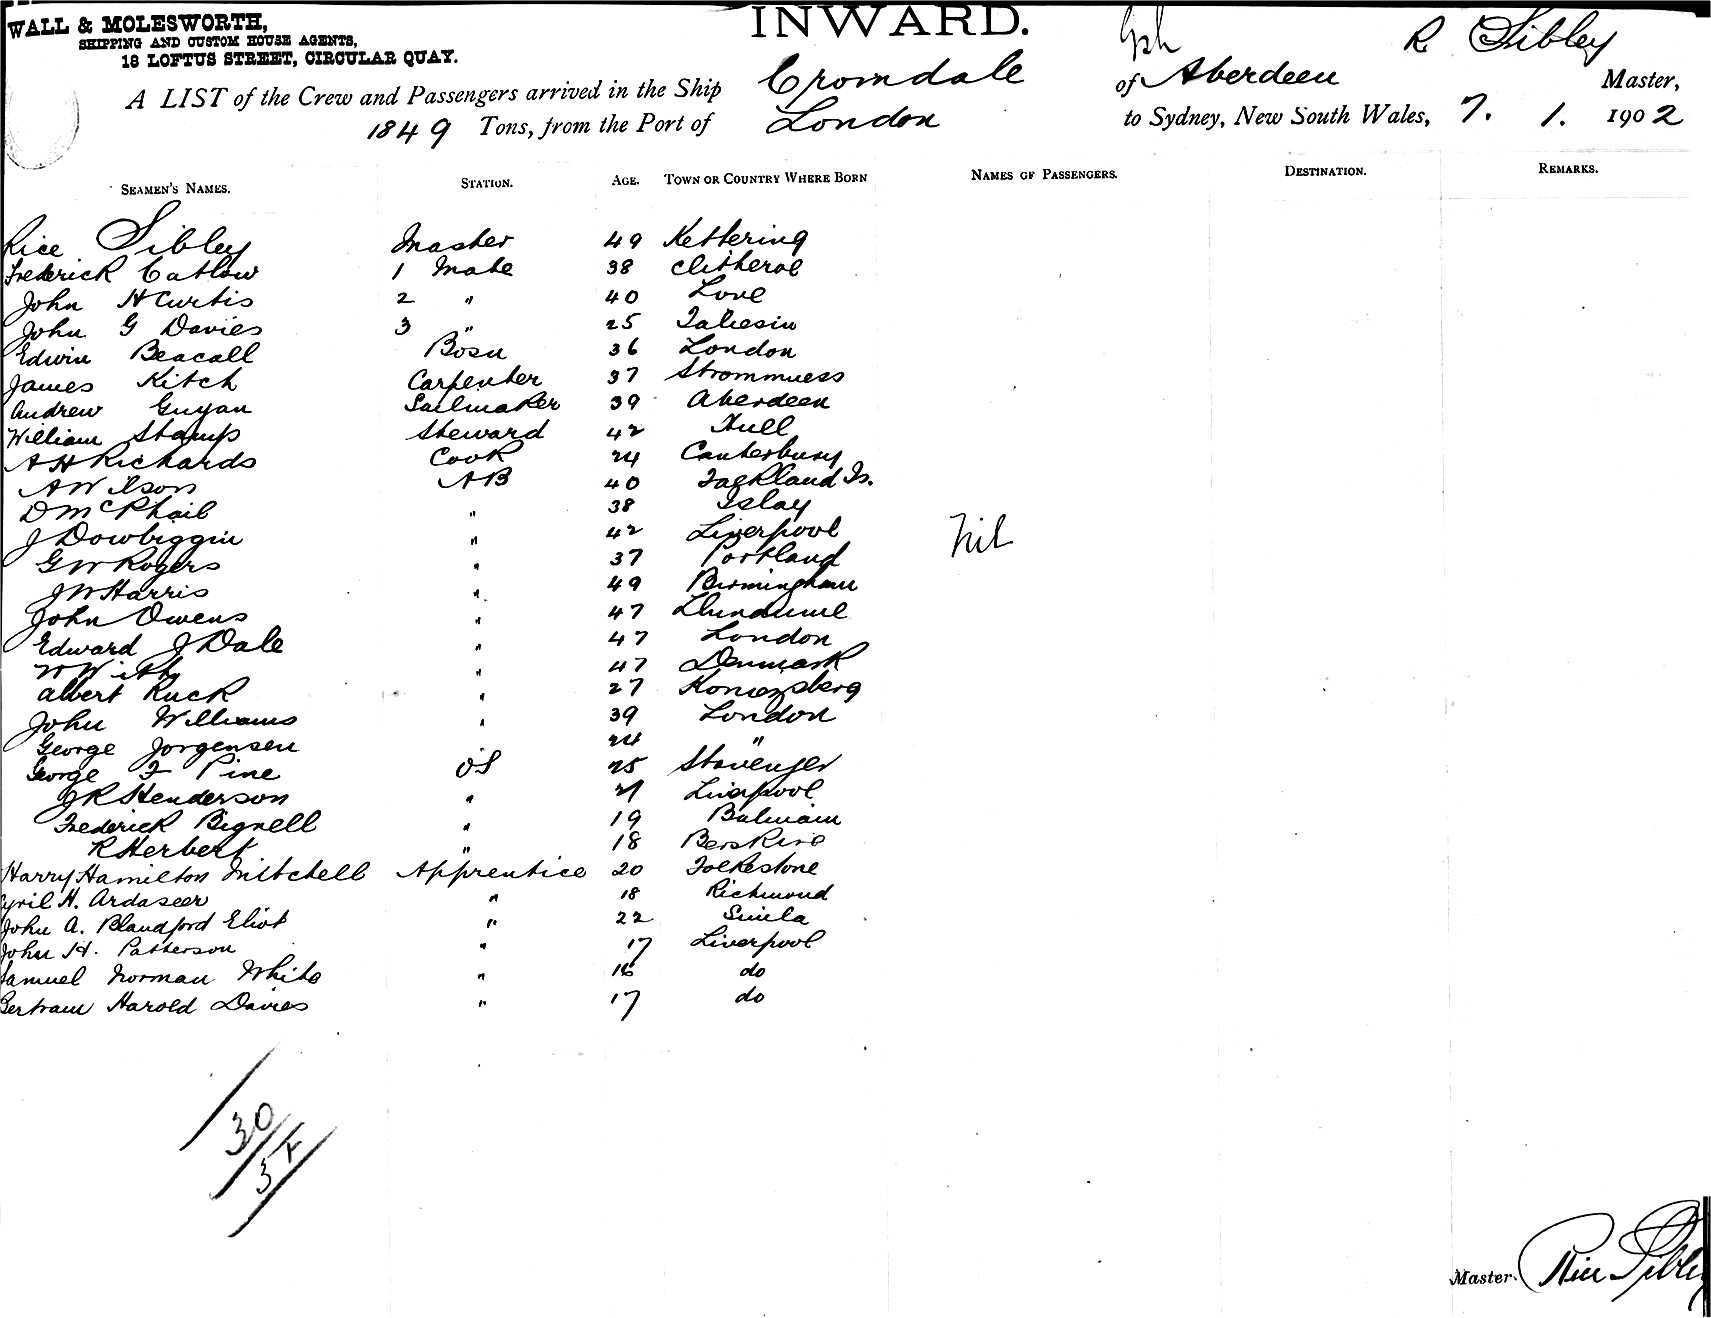 WALL & MOLESWORTH,
SHIPPING AND CUSTOM HOUSE AGENTS,
18 LOFTUS STREET, CIRCULAR QUAY.
INWARD.
R Sibley
A LIST of the Crew and Passengers arrived in the Ship Cromdale of Aberdeen Master,
1849 Tons, from the Port of London to Sydney, New South Wales, 7. 1. 1902
SEAMEN'S NAMES. STATION. AGE. TOWN OR COUNTRY WHERE BORN NAMES OF PASSENGERS. DESTINATION. REMARKS.
Rice Sibley Master 49 Kettering
Frederick Catlow 1 Mate 38 Clitheroe
John H Curtis 2 " 40
John G Davies 3 " 25 Taliesin
Edwin Beacall Bosn 36 London
James Kitch Carpenter 37 Strommness
Andrew Guyan Sailmaker 39 Aberdeen
William Stamp Steward 42 Hull
A H Richards Cook 24 Canterbury
A Wilson AB 40 Falkland Is.
D McPhail " 38 Islay
J Dowbiggin " 42 Liverpool
Nil
G W Rogers " 37 Portland
J W Harris " 49 Birmingham
John Owens " 47
Edward J Dale " 47 London
W With " 47 Denmark
Albert Ruck " 27 Konigsberg
John Williams " 39 London
George Jorgensen 24 "
George F Pine OS 25 Stavenger
J R Henderson " 21 Liverpool
Frederick Bignell " 19 Balmain
R Herbert " 18
Harry Hamilton Mitchell Apprentice 20 Folkestone
Cyril H. Ardaseer " 18 Richmond
John A. Blandford Eliot " 22 Simla
John H. Patterson " 17 Liverpool
Samuel Norman White " 16 do
Bertram Harold Davies " 17 do
30
Master. Rice Sibley